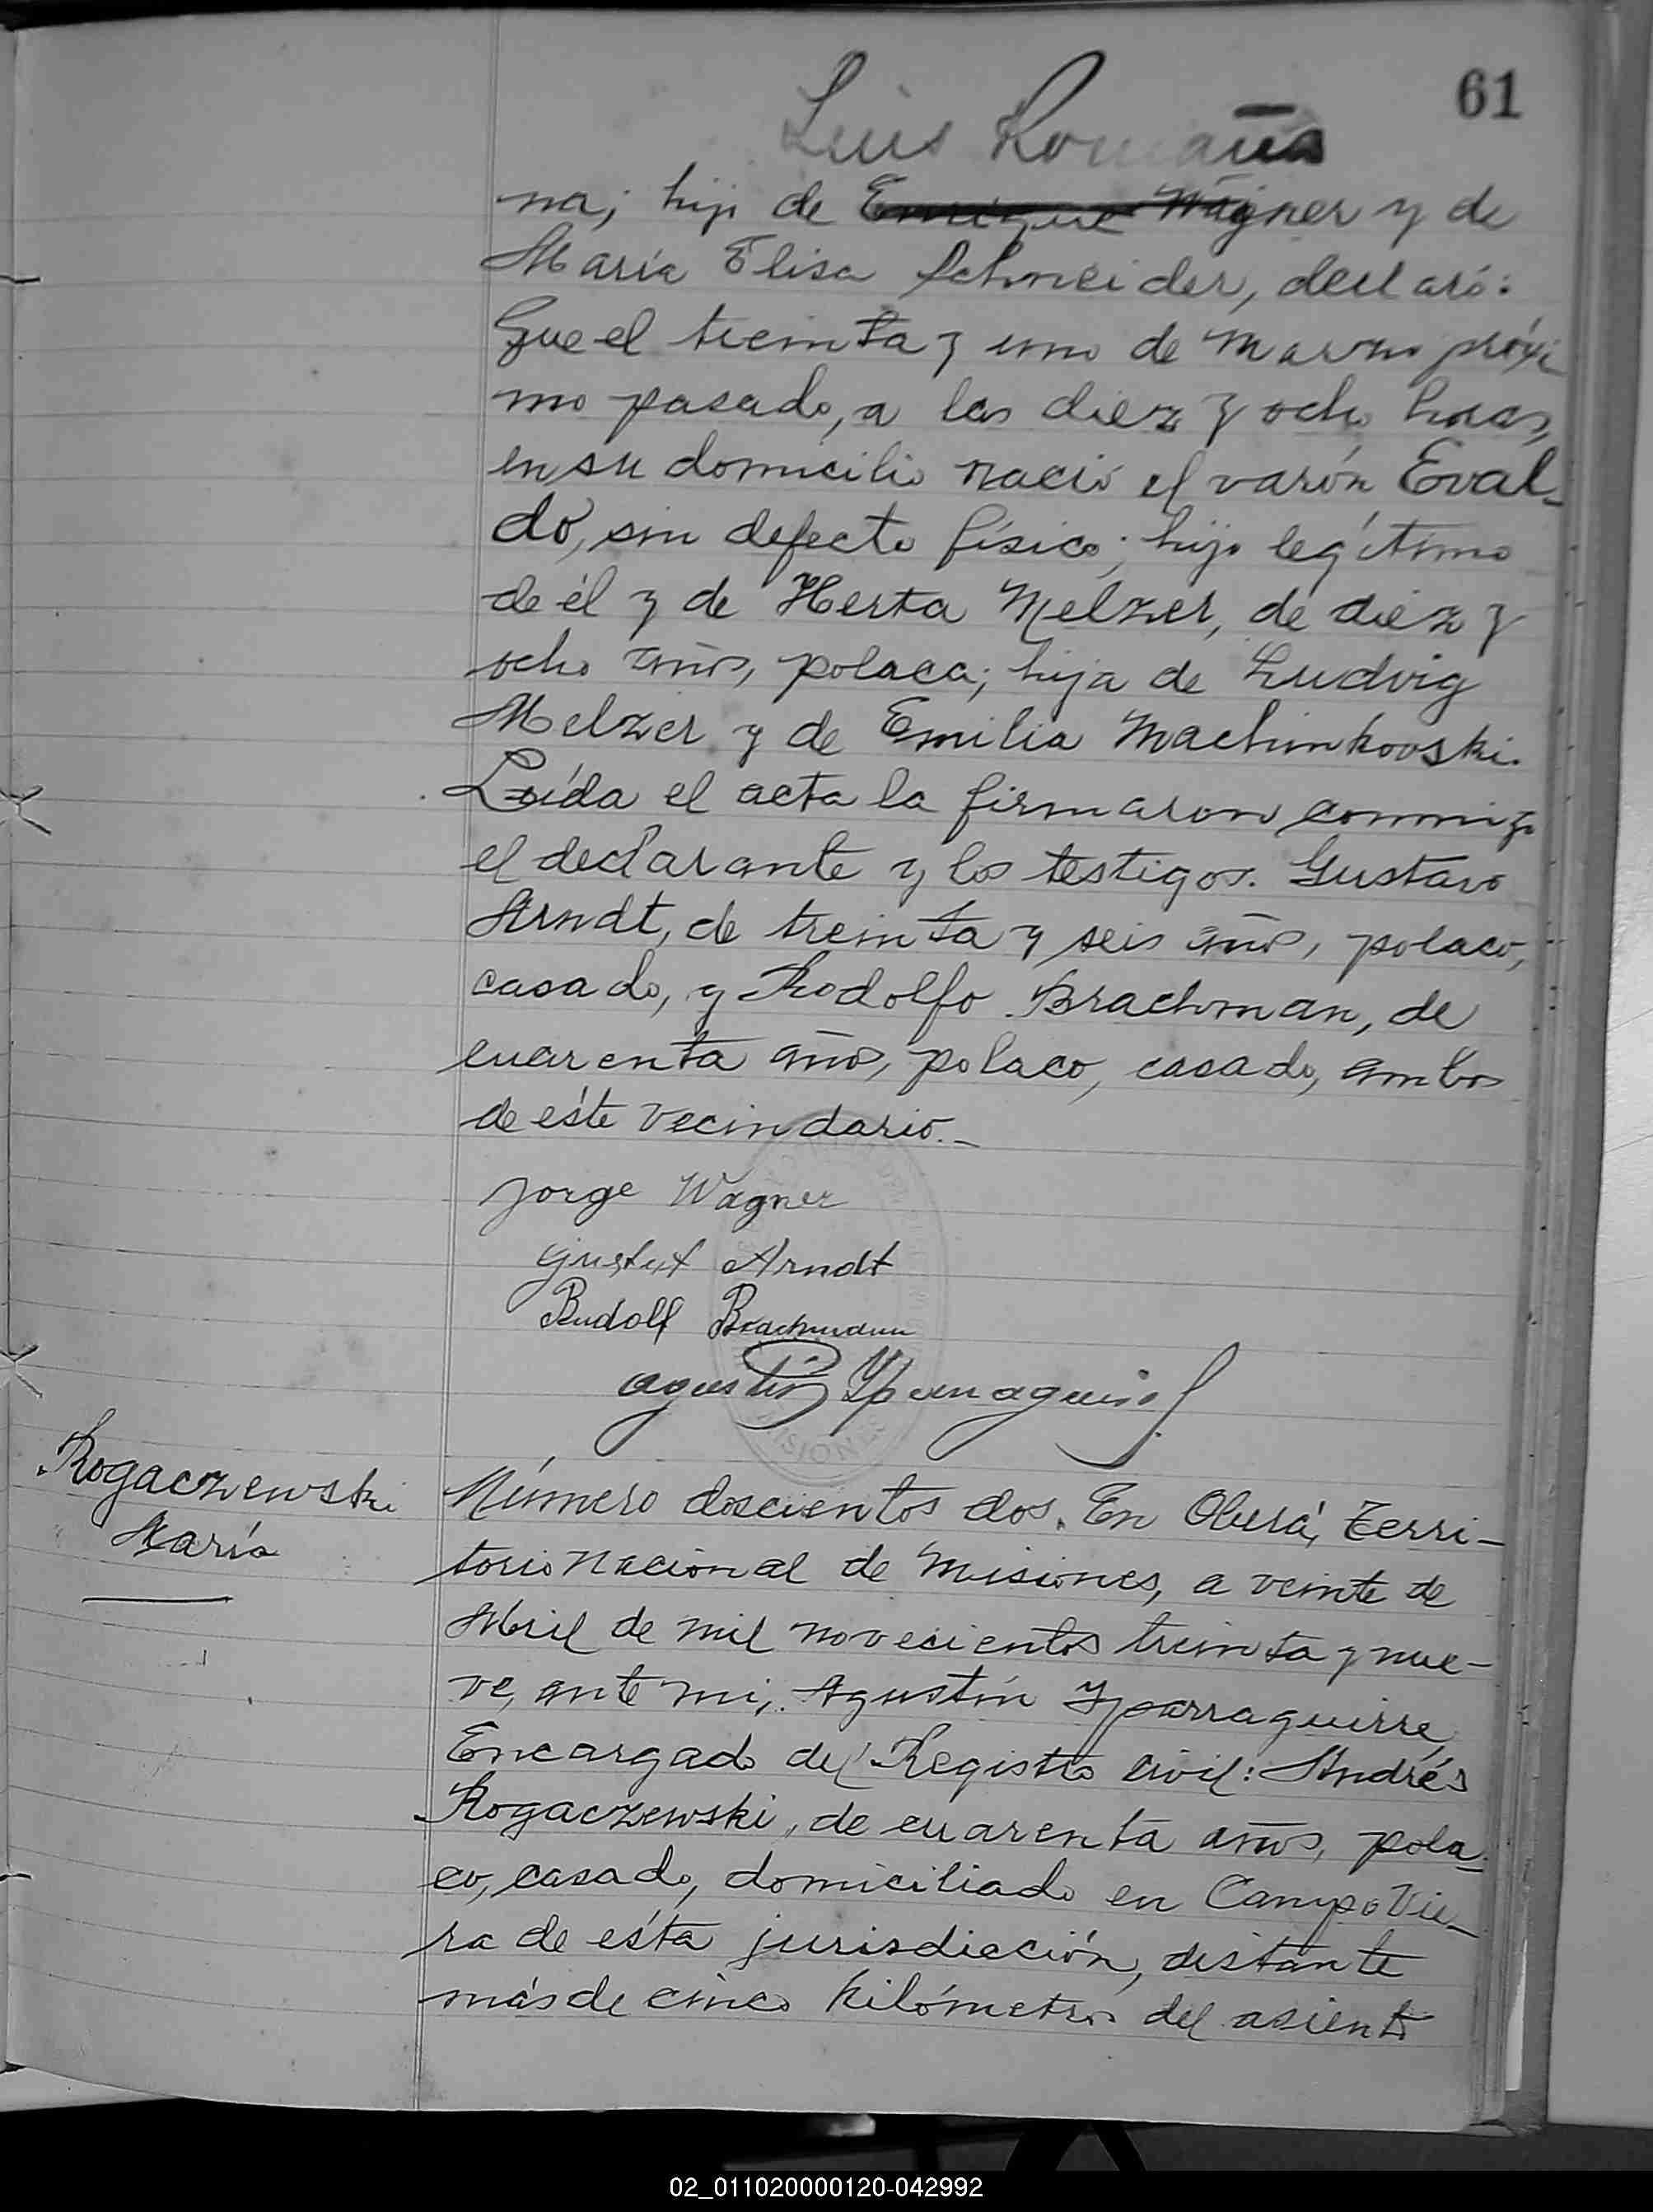 61
Luis Romaña
na; hijo de Enrique Wagner y de
María Elisa Schneider, declaró:
Que el treinta y uno de Marzo próxi
mo pasado, a las diez y ocho horas,
en su domicilio nació el varón Eval-
do, sin defecto físico; hijo legítimo
de él y de Herta Melzer, de diez y
ocho años, polaca; hija de Ludvig
Melzer y de Emilia Machinkovski.
Leída el acta la firmaron conmigo
el declarante y los testigos. Gustavo
Arndt, de treinta y seis años, polaco,
casado, y Rodolfo Brachman, de
cuarenta años, polaco, casado, ambos
de éste vecindario.-
Jorge Wagner
Gustaf Arndt
Rudolf Brachmann
Agustín Yparraguirre
MISIONES
Rogaczewski
María
Número doscientos dos. En Oberá, Terri-
torio Nacional de Misiones, a veinte de
Abril de mil novecientos treinta y nue-
ve, ante mi, Agustín Yparraguirre,
Encargado del Registro Civil: Andrés
Rogaczewski, de cuarenta años, pola-
co, casado, domiciliado en Campo Vie-
ra de ésta jurisdicción, distante
más de cinco kilómetros del asiento
02_011020000120-042992